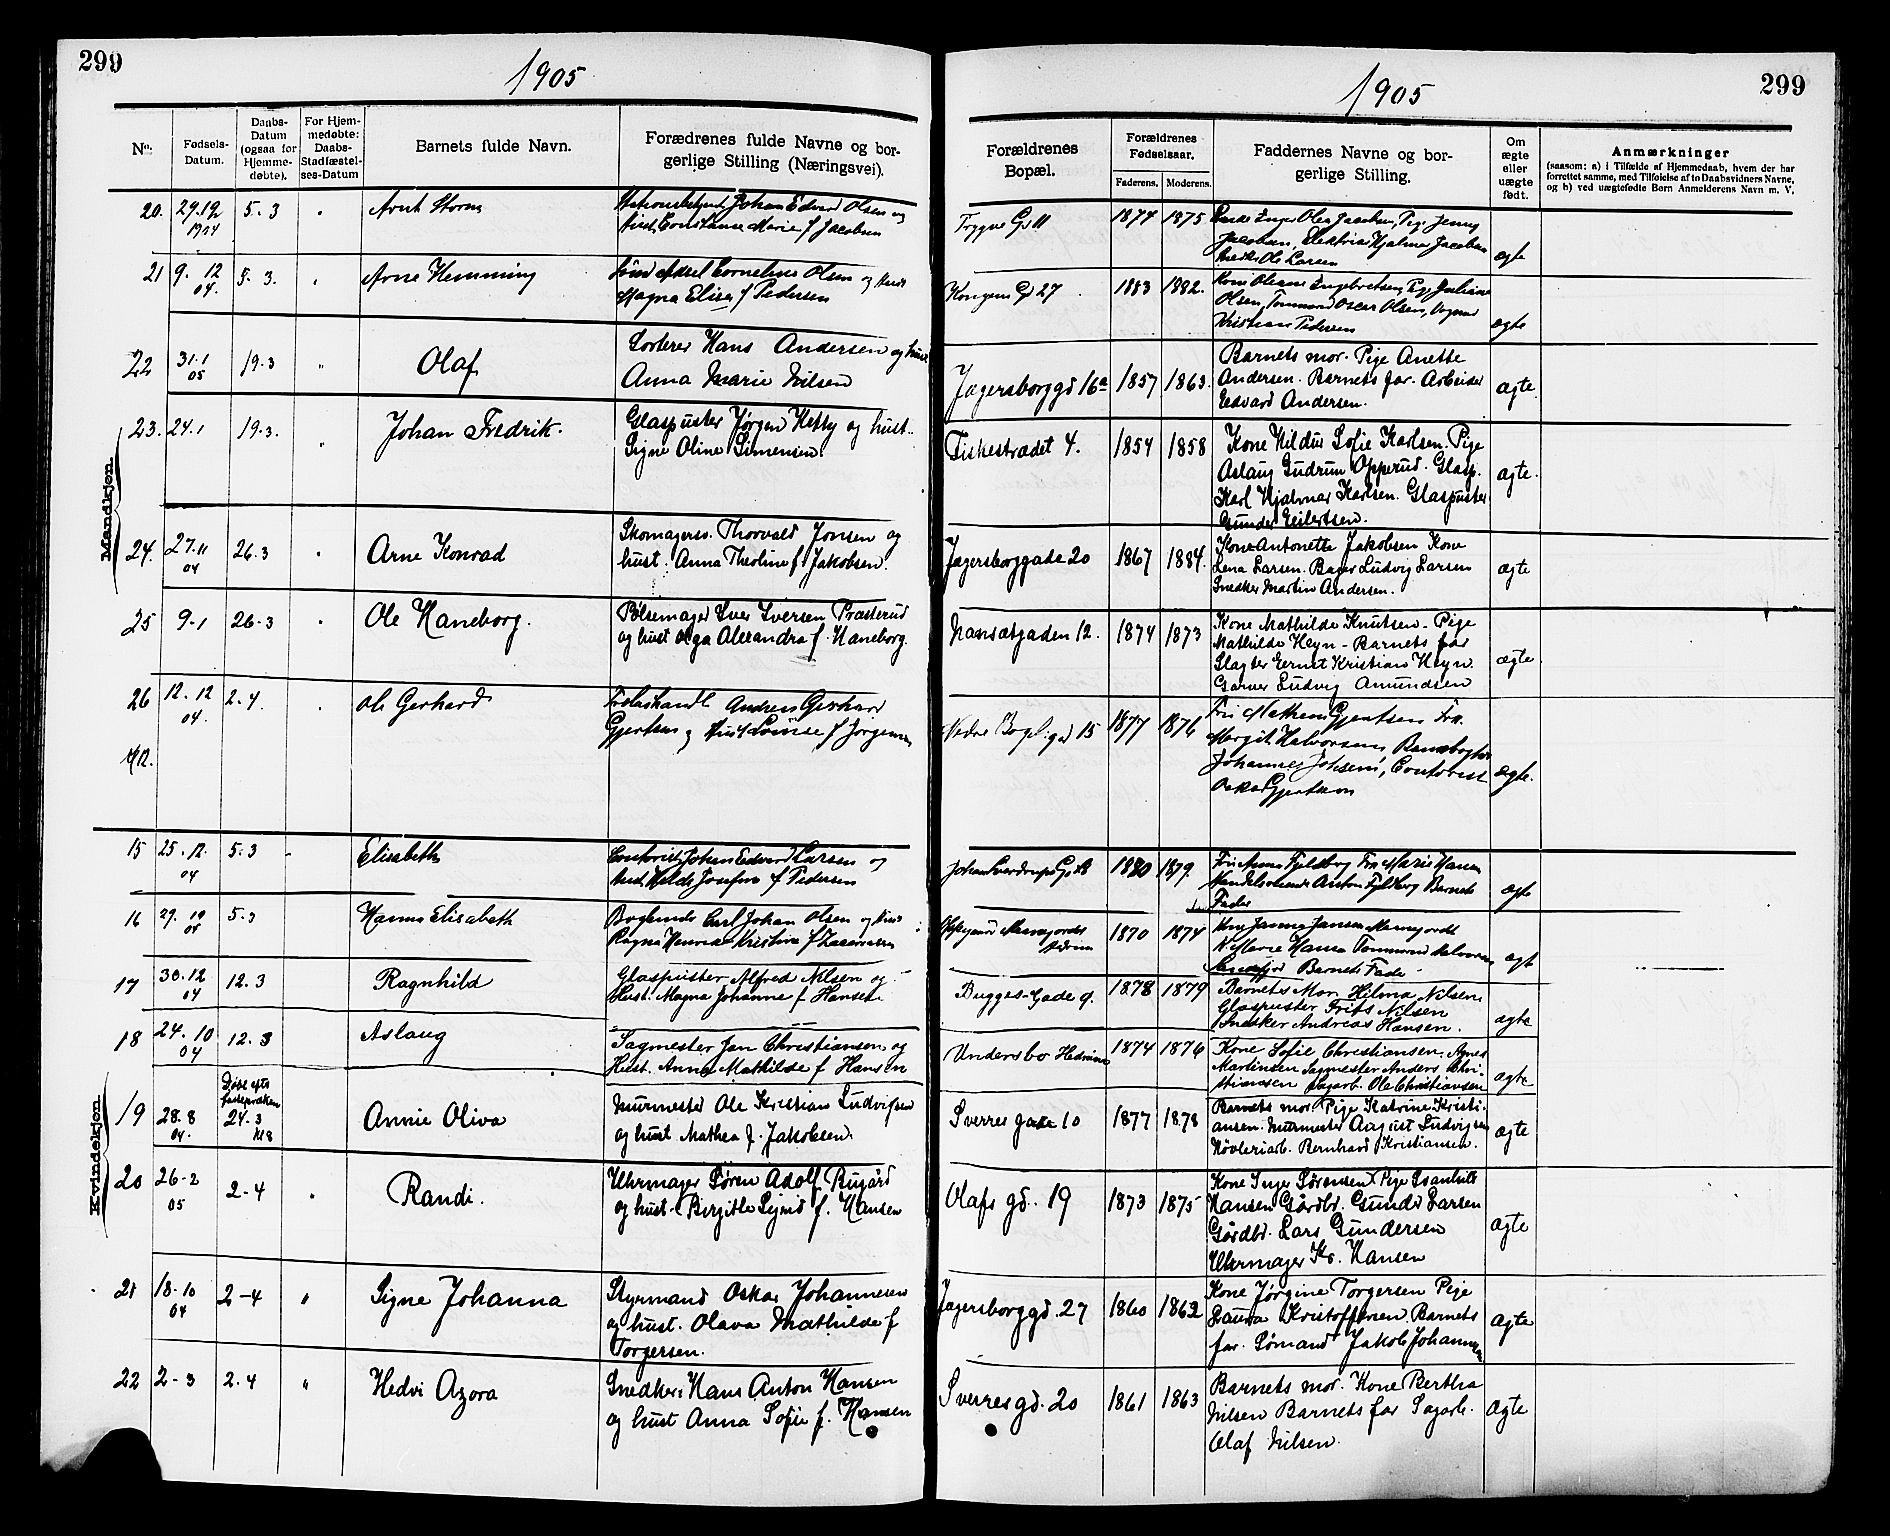 299
1905
No.
Fødsels-
Datum.
Daabs-
Datum
(ogsaa for
Hjemme-
døbte).
For Hjem-
medøbte:
Daabs-
Stadfæstel-
ses-Datum
Barnets fulde Navn.
Forældrenes fulde Navne og bor-
gerlige Stilling (Næringsvei).
Mandkjøn.
20. 29.12 1904 5.3 " Arnt Storm Johan Edvard Olsen og
Hust. Constance Marie f Jacobsen
21 9.12 04. 5.3. " Arne Hemming Axel Cornelius Olsen og Hust
Magna Elise f Pedersen
22 31.1 05 19.3 " Olaf Sorterer Hans Andersen og hust
Anna Marie Nilsen
23. 24.1 19.3. " Johan Fredrik. Glaspuster Jørgen Hetty og hust.
Signe Oline Simensen.
24. 27.11 04 26.3 " Arne Konrad Skomagers. Thorvald Jonsen og
hust. Anna Theoline f Jakobsen.
25 9-1 26-3 " Ole Haneborg. Pølsemager Iver Iversen Præsterud
og hust Olga Alexandra f. Haneborg.
26 12.12 04. 2-4. Ole Gerhard Andreas Gerhard
Gjertsen og Hust Louise f Jørgensen
Kvindekjøn.
15 25.12. 04 5.3 - Elisabeth Contorist Johan Edvard Larsen og
Hust. Hilda Josefine f Pedersen
16 5.3 Hanna Elisabeth Carl Johan Olsen og Hust
Ragna Kristine f
17 30.12 04 12.3 Ragnhild Glaspuster Alfred Nilsen og
Hust. Magna Johanne f Hansen
18 24.10 04 12.3 Aslaug Sagmester Jan Christiansen og
Hust. Anna Mathilde f Hansen
19 28.8 04. 24.3 Annie Oliva Murmester Ole Kristian Ludvigsen
og hust Mathea f. Jakobsen.
20 26-2 05 2-4 " Randi. Uhrmager Søren Adolf Rugård
og hust. Birgitte Sigrid f. Hansen
21 18-10 04 2-4 " Signe Johanna Styrmand Oskar Johannesen
og hust. Olava Mathilde f
Torgersen.
22 2-3 2.4 " Hedvi Azora Snedker Hans Anton Hansen
og hust Anna Sofie f. Hansen
299
1905
Forældrenes
Bopæl.
Forældrenes
Fødselsaar.
Faderens. Moderens.
Faddernes Navne og bor-
gerlige Stilling.
Om
ægte
eller
uægte
født.
Anmærkninger
(saasom: a) i Tilfælde af Hjemmedaab, hvem der har
forrettet samme, med Tilføielse af to Daabsvidners Navne,
og b) ved uægtefødte Børn Anmelderens Navn m. V.
Trygve G. 11 1874 1875 Olea Jacobsen, Pig. Jenny
Jacobsen, Hjalmar Jacobsen
Ole Larsen ægte
Kongens G 27 1883 1882. Oleane Engebretsen, Pig. Juliane
Olsen, Tømmermd Oscar Olsen,
Kristian Pedersen ægte
Jægersborggd 16a 1857 1863. Barnets mor. Pige Anette
Andersen. Barnets far. Arbeider
Edvard Andersen. ægte
Fiskestrædet 4. 1854 1858 Kone Hildur Sofie Karlsen. Pige
Aslaug Gudrun Opperud. Glasp.
Karl Hjalmar Karlsen. Glaspuster
Gunder Eilertsen. ægte.
Jægersborggade 20 1867 1884. Kone Antonette Jakobsen Kone
Lena Larsen. Bager Ludvig Larsen
Snedker Martin Andersen. ægte
Nansetgaden 12. 1874 1873 Kone Mathilde Knutsen - Pige
Mathilde Heyn - Barnets far
Slagter Ernst Kristian Heyn
Garver Ludvig Amundsen ægte
Nedre 15 1877 1876 Fru Gjertsen Frk.
Margit Halvorsen,
Johannes Johsen, Contorist
Oskar Gjertsen ægte.
Johan Sverdrups G. 1880 1879. Fru Anna Fjeldberg Fru Marie Hansen
Anton Fjeldberg Barnets
Fader ægte
1870 1874 Janna Jansen
Marie Hansen Tømmermd Halvorsen
Barnets Fader ægt
Bugges-Gade 9. 1878 1879 Barnets Mor, Hilma Nilsen
Glaspuster Frits Nilsen
Snedker Andreas Hansen. ægte
Undersbo Hedrum 1874 1876 Kone Sofie Christiansen. Agnes
Martinsen Sagmester Anders Chri-
stiansen Sagarb. Ole Christiansen ægte
Sverres gade 10 1877 1878 Barnets mor. Pige Katrine Kristi-
ansen. Murmester August Ludvigsen
Høvleriarb. Bernhard Kristiansen. ægte
Olafs gd. 19 1873 1875 Kone Inger Sørensen Pige Ganhild
Hansen Gårdbr. Gunder Larsen
Gårdbr. Lars Gundersen
Uhrmager Kr. Hansen ægte
Jægersborggd. 27 1860 1862 Kone Jørgine Torgersen Pige
Laura Kristoffersen Barnets
far. Sømand Jakob Johannesen ægte
Sverres gd. 20 1861 1863 Barnets mor. Kone Bertha
Nilsen Barnets far Sagarb.
Olaf Nilsen. Ægte